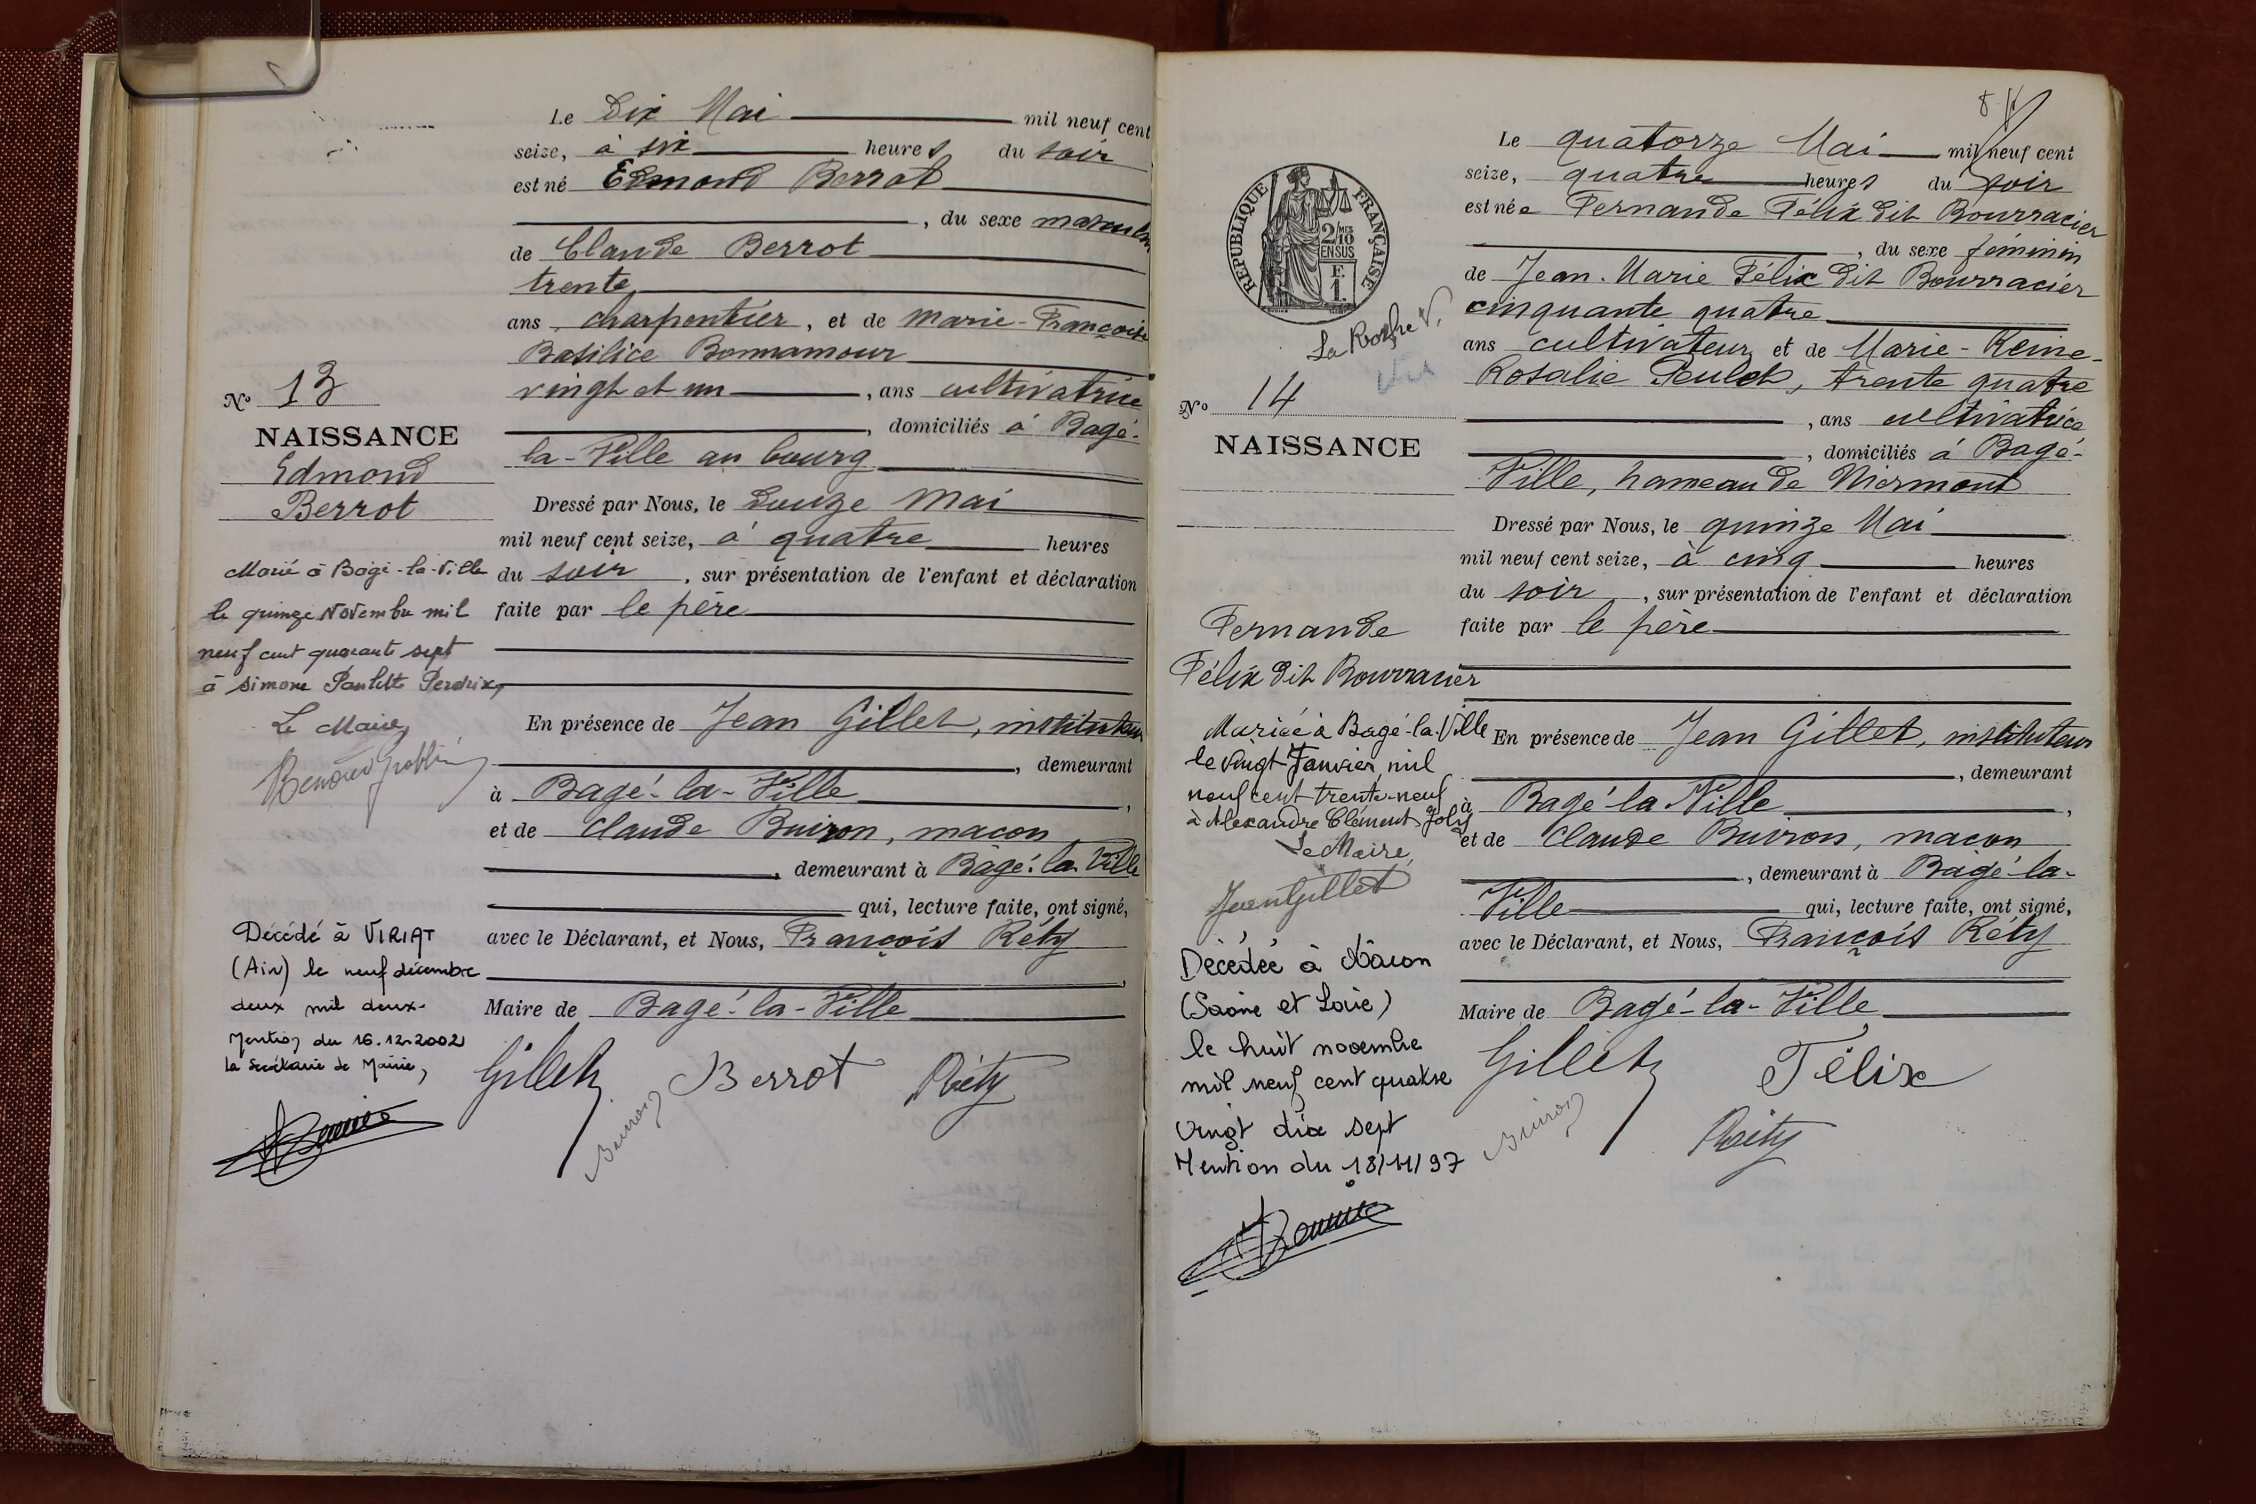 Le Dix Mai mil neuf cent
seize, à six heures du soir
est né Edmond Berrot
, du sexe masculin
de Claude Berrot
trente
ans charpentier, et de Marie-Françoise
Basilice Bonnamour
vingt et un, ans cultivatrice
, domiciliés à Bagé-
la-Ville au bourg
Dressé par Nous, le Douze Mai
mil neuf cent seize, à quatre heures
du soir, sur présentation de l'enfant et déclaration
faite par le père
En présence de Jean Gillet, instituteur
, demeurant
à Bagé-la-Ville,
et de Claude Buiron, maçon
, demeurant à Bâgé-la-Ville
qui, lecture faite, ont signé,
avec le Déclarant, et Nous, François Réty
Maire de Bagé-la-Ville
Gillet Buiron Berrot Réty
No 13
NAISSANCE
Edmond
Berrot
Marié à Bâgé-la-Ville
le quinze Novembre mil
neuf cent quarante sept
à Simone Paulette Perdrix
Le Maire,
Décédé à VIRIAT
(Ain) le neuf décembre
deux mil deux-
Mention du 16.12.2002
la Secrétaire de Mairie,
Le quatorze Mai mil neuf cent
seize, quatre heures du soir
est née Fernande Félix dit Bourracier
, du sexe féminin
de Jean-Marie Félix dit Bourracier
cinquante quatre
ans cultivateur, et de Marie-Reine-
Rosalie Peulet, trente quatre
, ans cultivatrice
, domiciliés à Bagé-
Ville, hameau de Niermont
Dressé par Nous, le quinze Mai
mil neuf cent seize, à cinq heures
du soir, sur présentation de l'enfant et déclaration
faite par le père
En présence de Jean Gillet, instituteur
, demeurant
à Bagé-la-Ville,
et de Claude Buiron, maçon
, demeurant à Bâgé-la-
Ville qui, lecture faite, ont signé,
avec le Déclarant, et Nous, François Réty
Maire de Bagé-la-Ville
Gillet Félix
Buiron Réty
REPUBLIQUE FRANÇAISE
2/10 MES
EN SUS
F.
1.
No 14
NAISSANCE
Fernande
Félix dit Bourracier
Mariée à Bagé-la-Ville
le vingt Janvier mil
neuf cent trente-neuf
à Alexandre Clément Joly
Le Maire,
Jean Gillet
Décédée à Mâcon
(Saône et Loire)
le huit novembre
mil neuf cent quatre
vingt dix sept
Mention du 18/11/97